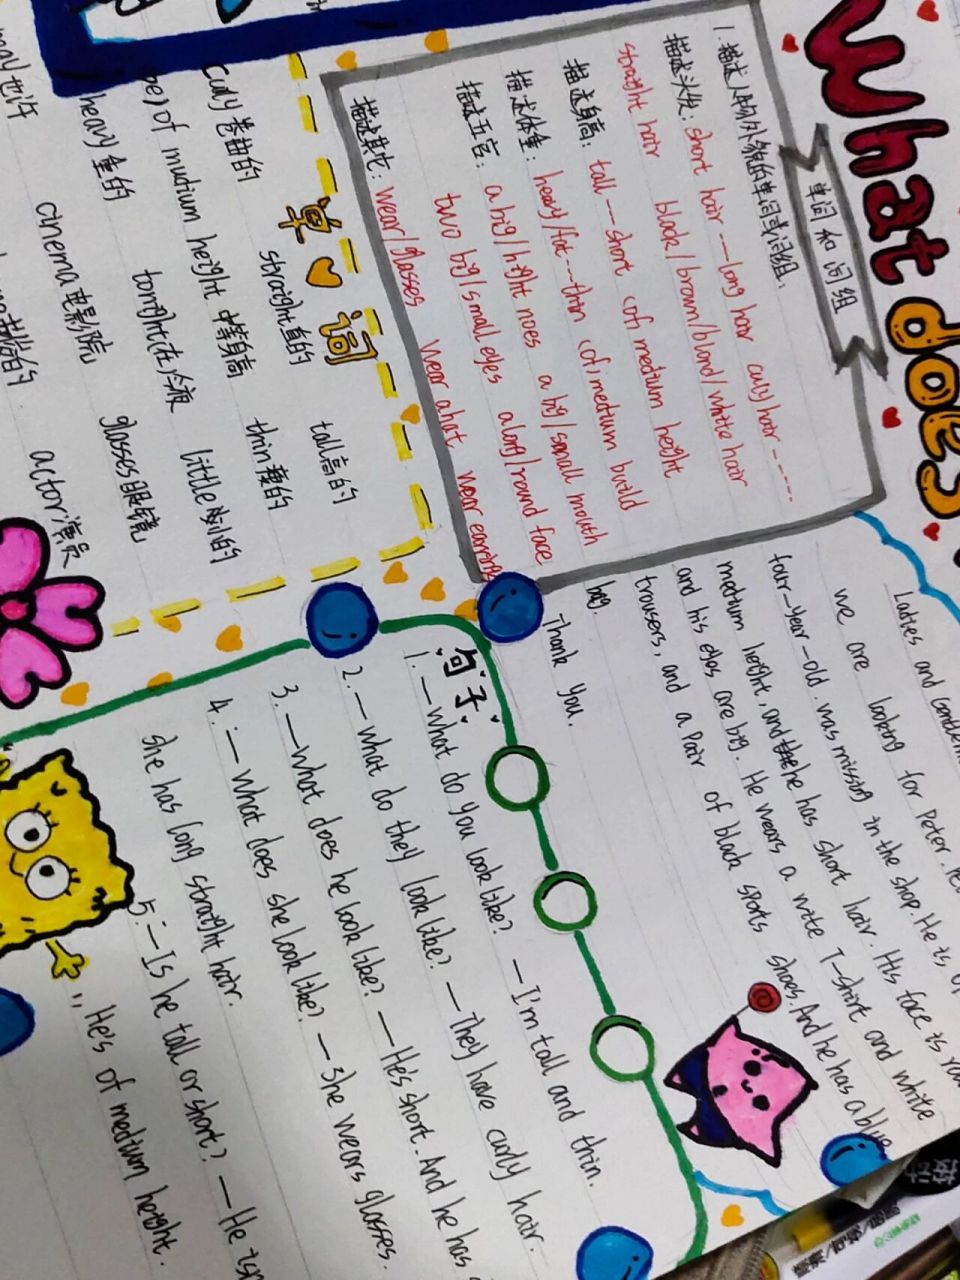 What does
单词和词组
1.描述人物外貌的单词或词组.
描述头发: short hair —long hair curly hair
straight hair black/brown/blond/white hair
描述身高: tall — short (of) medium height
描述体重: heavy/fat — thin (of) medium build
描述五官: a big/hight noes a big/small mouth
two big/small eyes along/round face
描述其它: wear/glasses wear a hat wear earrings
单词
tall高的
curly 卷曲的 straight 直的 thin 瘦的
of mudium height 中等身高 little 小的
heavy 重的 tonight 在今夜 glasses 眼镜
may 也许 cinema 电影院 actor 演员
Ladies and
we are looking for Peter.
four-year-old. was missing in the shop. He is of
medium height, and he has short hair. His face is
and his eyes are big. He wears a write T-shirt and white
trousers, and a pair of black sports shoes. And he has a blue
bag.
Thank you.
句子
1. —What do you look like? —I'm tall and thin.
2. —what do they look like? —They have curly hair.
3. —What does he look like? —He's short. And he has
4. —What does she look like? —She wears glasses.
she has long straight hair.
5. —Is he tall or short? —He isn
He's of medium height.